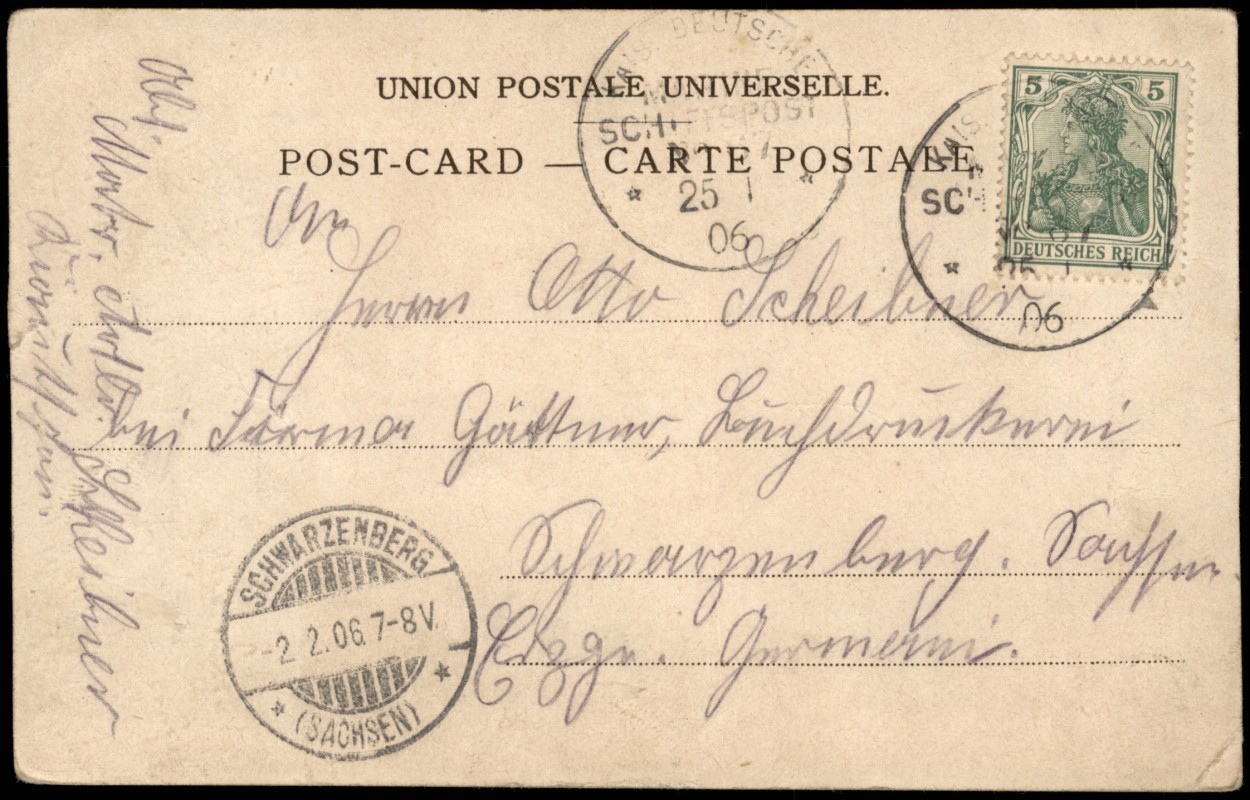 UNION POSTALE UNIVERSELLE.
POST-CARD — CARTE POSTALE
KAIS. DEUTSCHE
SCHIFFSPOST
25 1
06
KAIS.
SCH
25 1
06
5 5
DEUTSCHES REICH
An
Herrn Otto Scheibner
bei Firma Gärtner, Buchdruckerei
Schwarzenberg. Sachsen
Erzge. Germani.
SCHWARZENBERG
-2.2.06.7-8V.
(SACHSEN)
Abs.
Scheibner